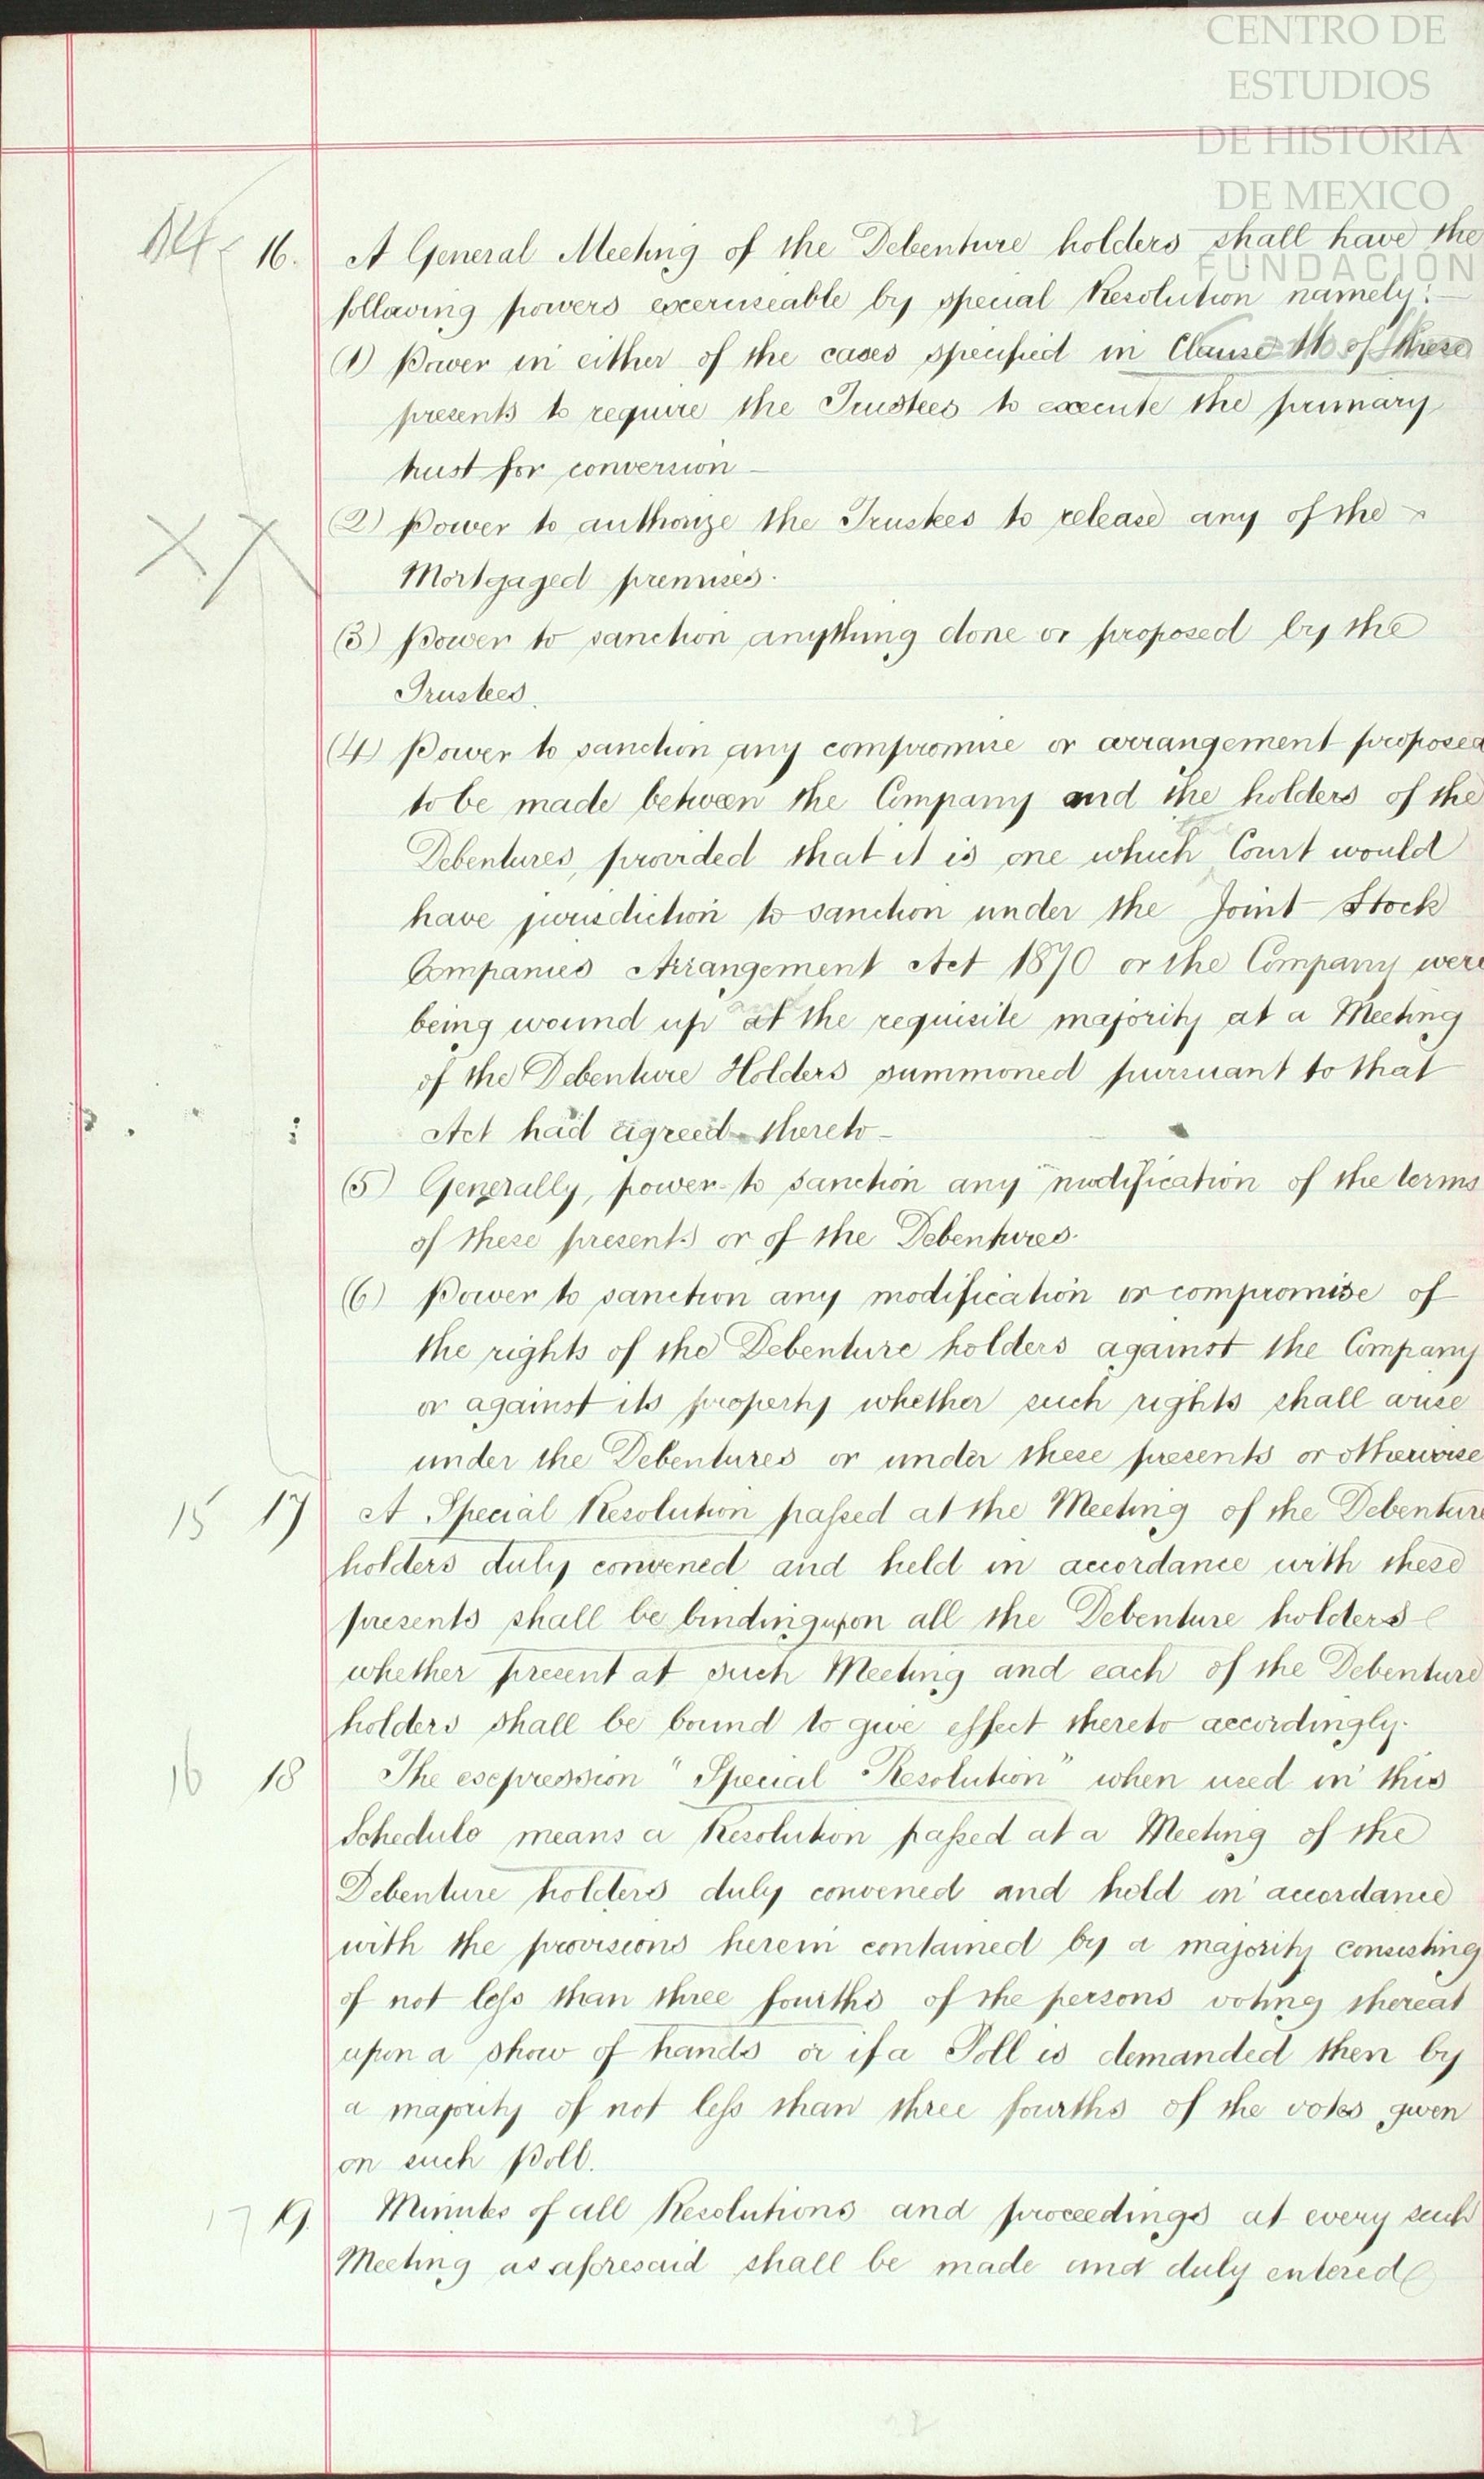 CENTRO DE
ESTUDIOS
DE HISTORIA
DE MEXICO
FUNDACIÓN
14 16. A General Meeting of the Debenture holders shall have the
following powers exerciseable by special Resolution namely:—
(1) Power in either of the cases specified in Clause 11 of these
presents to require the Trustees to execute the primary
trust for conversion —
(2) Power to authorize the Trustees to release any of the
Mortgaged premises.
(3) Power to sanction anything done or proposed by the
Trustees.
(4) Power to sanction any compromise or arrangement proposed
to be made between the Company and the holders of the
Debentures, provided that it is one which the Court would
have jurisdiction to sanction under the Joint Stock
Companies Arrangement Act 1870 or the Company were
being wound up at the requisite majority at a Meeting
of the Debenture Holders summoned pursuant to that
Act had agreed thereto —
(5) Generally, power to sanction any modification of the terms
of these presents or of the Debentures.
(6) Power to sanction any modification or compromise of
the rights of the Debenture holders against the Company
or against its property whether such rights shall arise
under the Debentures or under these presents or otherwise
15 17 A Special Resolution passed at the Meeting of the Debenture
holders duly convened and held in accordance with these
presents shall be binding upon all the Debenture holders
whether present at such Meeting and each of the Debenture
holders shall be bound to give effect thereto accordingly.
16 18 The expression "Special Resolution" when used in this
Schedule means a Resolution passed at a Meeting of the
Debenture holders duly convened and held in accordance
with the provisions herein contained by a majority consisting
of not less than three fourths of the persons voting thereat
upon a show of hands or if a Poll is demanded then by
a majority of not less than three fourths of the votes given
on such Poll.
17 19. Minutes of all Resolutions and proceedings at every such
Meeting as aforesaid shall be made and duly entered